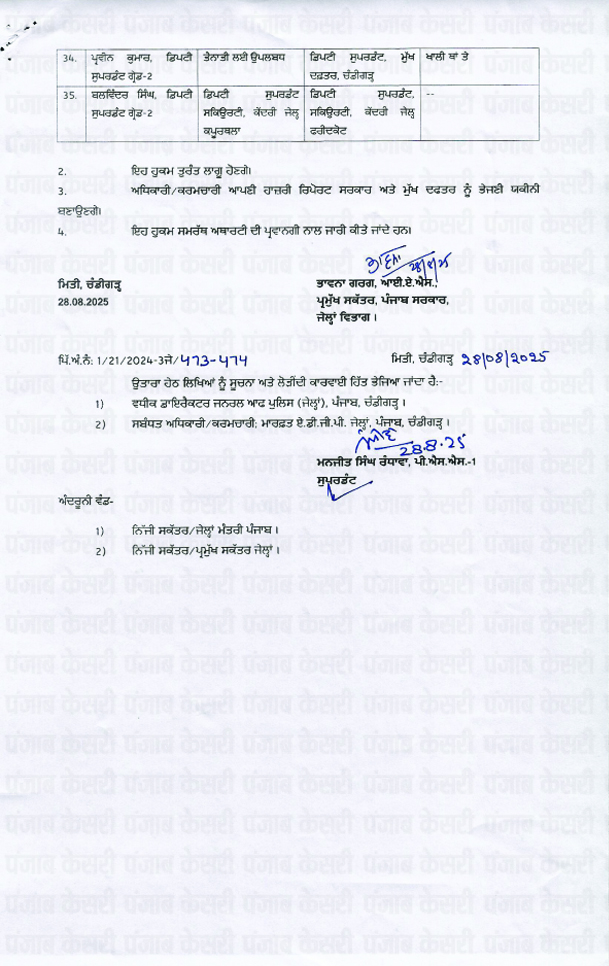 34. ਪ੍ਰਵੀਨ ਕੁਮਾਰ, ਡਿਪਟੀ ਤੈਨਾਤੀ ਲਈ ਉਪਲਬਧ ਡਿਪਟੀ ਸੁਪਰਡੰਟ, ਮੁੱਖ ਖਾਲੀ ਥਾਂ ਤੇ
ਸੁਪਰਡੰਟ ਗ੍ਰੇਡ-2 ਦਫ਼ਤਰ, ਚੰਡੀਗੜ੍ਹ
35. ਬਲਵਿੰਦਰ ਸਿੰਘ, ਡਿਪਟੀ ਡਿਪਟੀ ਸੁਪਰਡੰਟ ਡਿਪਟੀ ਸੁਪਰਡੰਟ, --
ਸੁਪਰਡੰਟ ਗ੍ਰੇਡ-2 ਸਕਿਊਰਟੀ, ਕੇਂਦਰੀ ਜੇਲ੍ਹ ਸਕਿਊਰਟੀ, ਕੇਂਦਰੀ ਜੇਲ੍ਹ
ਕਪੂਰਥਲਾ ਫਰੀਦਕੋਟ
2. ਇਹ ਹੁਕਮ ਤੁਰੰਤ ਲਾਗੂ ਹੋਣਗੇ।
3. ਅਧਿਕਾਰੀ/ਕਰਮਚਾਰੀ ਆਪਣੀ ਹਾਜ਼ਰੀ ਰਿਪੋਰਟ ਸਰਕਾਰ ਅਤੇ ਮੁੱਖ ਦਫਤਰ ਨੂੰ ਭੇਜਣਾ ਯਕੀਨੀ
ਬਣਾਉਣਗੇ।
4. ਇਹ ਹੁਕਮ ਸਮਰੱਥ ਅਥਾਰਟੀ ਦੀ ਪ੍ਰਵਾਨਗੀ ਨਾਲ ਜਾਰੀ ਕੀਤੇ ਜਾਂਦੇ ਹਨ।
ਭਾਵਨਾ 28/8/25
ਮਿਤੀ, ਚੰਡੀਗੜ੍ਹ ਭਾਵਨਾ ਗਰਗ, ਆਈ.ਏ.ਐਸ.,
28.08.2025 ਪ੍ਰਮੁੱਖ ਸਕੱਤਰ, ਪੰਜਾਬ ਸਰਕਾਰ,
ਜੇਲ੍ਹਾਂ ਵਿਭਾਗ ।
ਪਿੱ.ਅੰ.ਨੰ: 1/21/2024-3ਜੇ/473-474 ਮਿਤੀ, ਚੰਡੀਗੜ੍ਹ 28/08/2025
ਉਤਾਰਾ ਹੇਠ ਲਿਖਿਆਂ ਨੂੰ ਸੂਚਨਾ ਅਤੇ ਲੋੜੀਂਦੀ ਕਾਰਵਾਈ ਹਿੱਤ ਭੇਜਿਆ ਜਾਂਦਾ ਹੈ:-
1) ਵਧੀਕ ਡਾਇਰੈਕਟਰ ਜਨਰਲ ਆਫ ਪੁਲਿਸ (ਜੇਲ੍ਹਾਂ), ਪੰਜਾਬ, ਚੰਡੀਗੜ੍ਹ ।
2) ਸਬੰਧਤ ਅਧਿਕਾਰੀ/ਕਰਮਚਾਰੀ; ਮਾਰਫ਼ਤ ਏ.ਡੀ.ਜੀ.ਪੀ. ਜੇਲ੍ਹਾਂ, ਪੰਜਾਬ, ਚੰਡੀਗੜ੍ਹ ।
28.8.25
ਮਨਜੀਤ ਸਿੰਘ ਰੰਧਾਵਾ, ਪੀ.ਐਸ.ਐਸ.-1
ਸੁਪਰਡੰਟ
ਅੰਦਰੂਨੀ ਵੰਡ-
1) ਨਿੱਜੀ ਸਕੱਤਰ/ਜੇਲ੍ਹਾਂ ਮੰਤਰੀ ਪੰਜਾਬ ।
2) ਨਿੱਜੀ ਸਕੱਤਰ/ਪ੍ਰਮੁੱਖ ਸਕੱਤਰ ਜੇਲ੍ਹਾਂ ।
ਪੰਜਾਬ ਕੇਸਰੀ